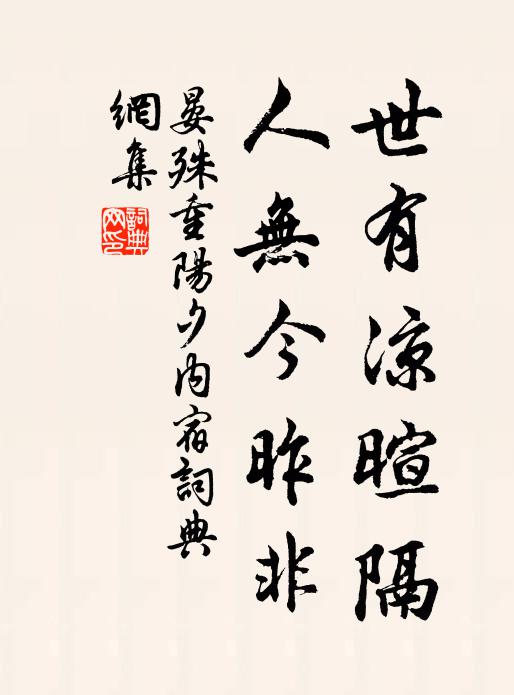 世有涼暄隔
人無今昨非
晏殊重陽夕內宿詞典
網集
詞典
网印